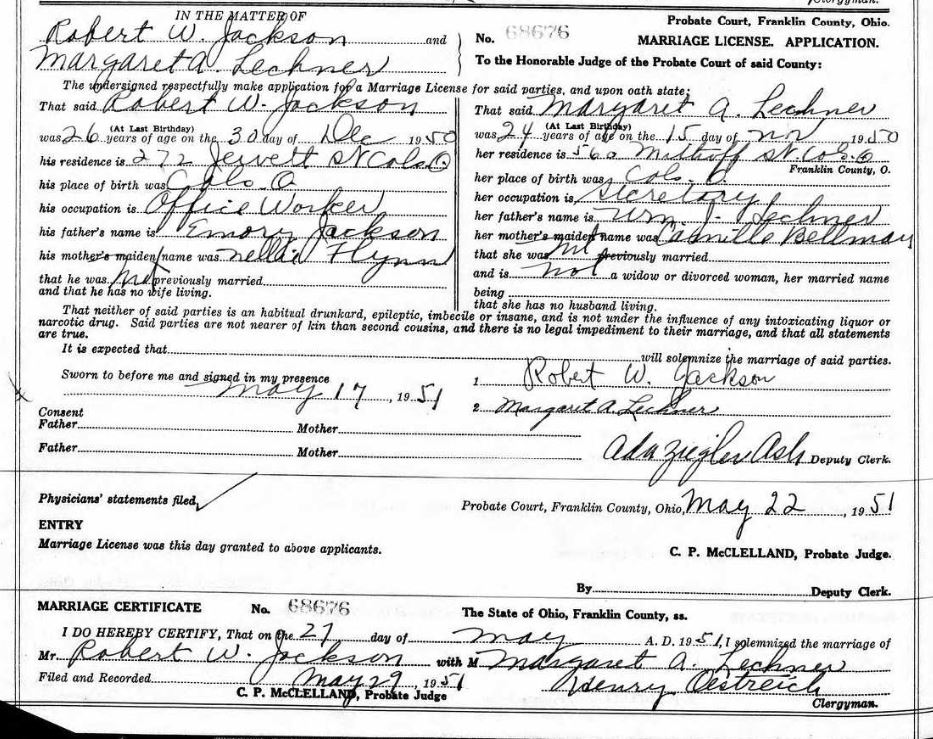 Clergyman.
IN THE MATTER OF
Robert W. Jackson and
Margaret A. Lechner
Probate Court, Franklin County, Ohio.
No. 68676 MARRIAGE LICENSE. APPLICATION.
To the Honorable Judge of the Probate Court of said County:
The undersigned respectfully make application for a Marriage License for said parties, and upon oath state;
That said Robert W. Jackson
was 26 years of age on the 30 day of Dec 1950
(At Last Birthday)
his residence is 272 St Cols. O
his place of birth was Cols. O
his occupation is Office Worker
his father's name is Emory Jackson
his mother's maiden name was Flynn
that he was not previously married
and that he has no wife living.
That said Margaret A. Lechner
was 24 years of age on the 15 day of Nov 1950
(At Last Birthday)
her residence is 560 St. Cols. O
Franklin County, O.
her place of birth was Cols. O.
her occupation is Secretary
her father's name is Wm J. Lechner
her mother's maiden name was Camille Bellmay
that she was not previously married
and is not a widow or divorced woman, her married name
being
that she has no husband living.
That neither of said parties is an habitual drunkard, epileptic, imbecile or insane, and is not under the influence of any intoxicating liquor or
narcotic drug. Said parties are not nearer of kin than second cousins, and there is no legal impediment to their marriage, and that all statements
are true.
It is expected that will solemnize the marriage of said parties.
Sworn to before me and signed in my presence
May 17, 1951
1 Robert W. Jackson
2 Margaret A. Lechner
Consent
Father Mother
Father Mother
Ada Ziegler Ash Deputy Clerk.
Physicians' statements filed,
Probate Court, Franklin County, Ohio, May 22, 1951
ENTRY
Marriage License was this day granted to above applicants.
C. P. McCLELLAND, Probate Judge.
By Deputy Clerk.
MARRIAGE CERTIFICATE No. 68676 The State of Ohio, Franklin County, ss.
I DO HEREBY CERTIFY, That on the 27 day of May A. D. 1951, I solemnized the marriage of
Mr. Robert W. Jackson with M Margaret A. Lechner
Filed and Recorded May 29, 1951
C. P. McCLELLAND, Probate Judge
Henry Oestreich
Clergyman.